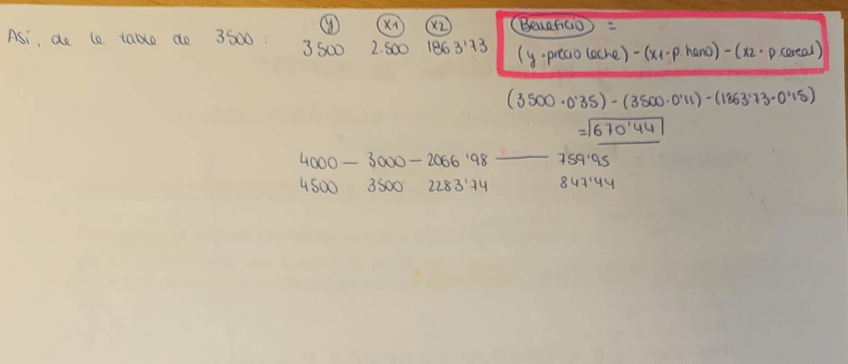 Así, de le table de 3500 :
y x1 x2
3500 2.500 1863'73
Beneficio =
(y · precio leche) - (x1 · p. heno) - (x2 · p. cereal)
(3500 · 0'35) - (3500 · 0'11) - (1863'73 · 0'15)
= 670'44
4000 — 3000 — 2066'98 — 759'95
4500 3500 2283'74 847'44